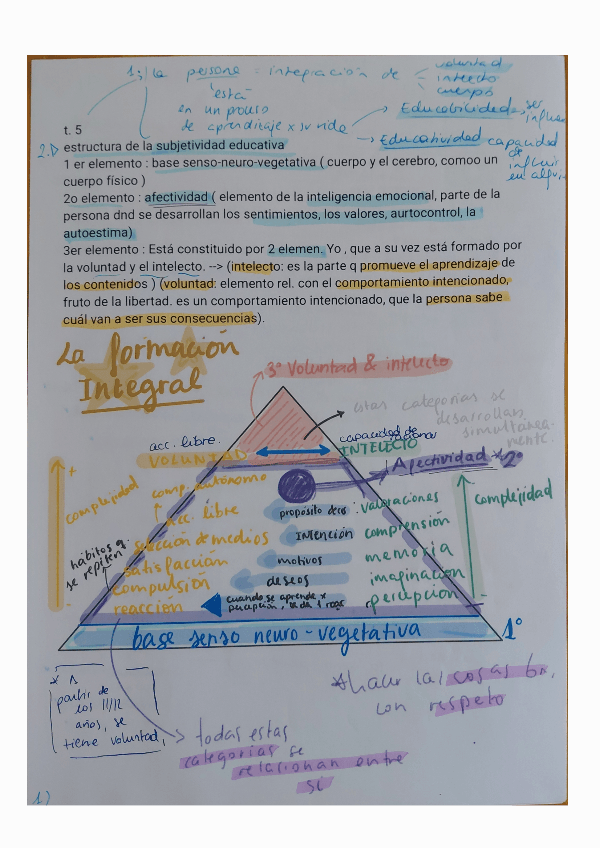 1) La persona = integración de
voluntad
intelecto
cuerpo
"está"
en un proceso
de aprendizaje x su vida
→ Educabilidad → ser
influido
→ Educatividad capacidad
de
influir
en alguien
t. 5
2.D
estructura de la subjetividad educativa
1 er elemento : base senso-neuro-vegetativa ( cuerpo y el cerebro, comoo un
cuerpo físico )
2o elemento : afectividad ( elemento de la inteligencia emocional, parte de la
persona dnd se desarrollan los sentimientos, los valores, aurtocontrol, la
autoestima)
3er elemento : Está constituido por 2 elemen. Yo , que a su vez está formado por
la voluntad y el intelecto. --> (intelecto: es la parte q promueve el aprendizaje de
los contenidos ) (voluntad: elemento rel. con el comportamiento intencionado,
fruto de la libertad. es un comportamiento intencionado, que la persona sabe
cuál van a ser sus consecuencias).
La formación
Integral
3º Voluntad & intelecto
estas categorias se
desarrollan
simultánea-
mente.
acc. libre.
VOLUNTAD
capacidad de
INTELECTO
Afectividad * 2º
+
complejidad
-
comp. autónomo
acc. libre
selección de medios
satisfacción
compulsión
reacción
hábitos q
se repiten
propósito
intención
motivos
deseos
cuando se aprende x
percepción,
valoraciones
comprensión
memoria
imaginación
percepción
complejidad
-
base senso neuro-vegetativa
1º
* A
partir de
los 11/12
años, se
tiene voluntad,
→ todas estas
categorias se
relacionan entre
sí
*hacer las cosas bn,
con respeto
1)